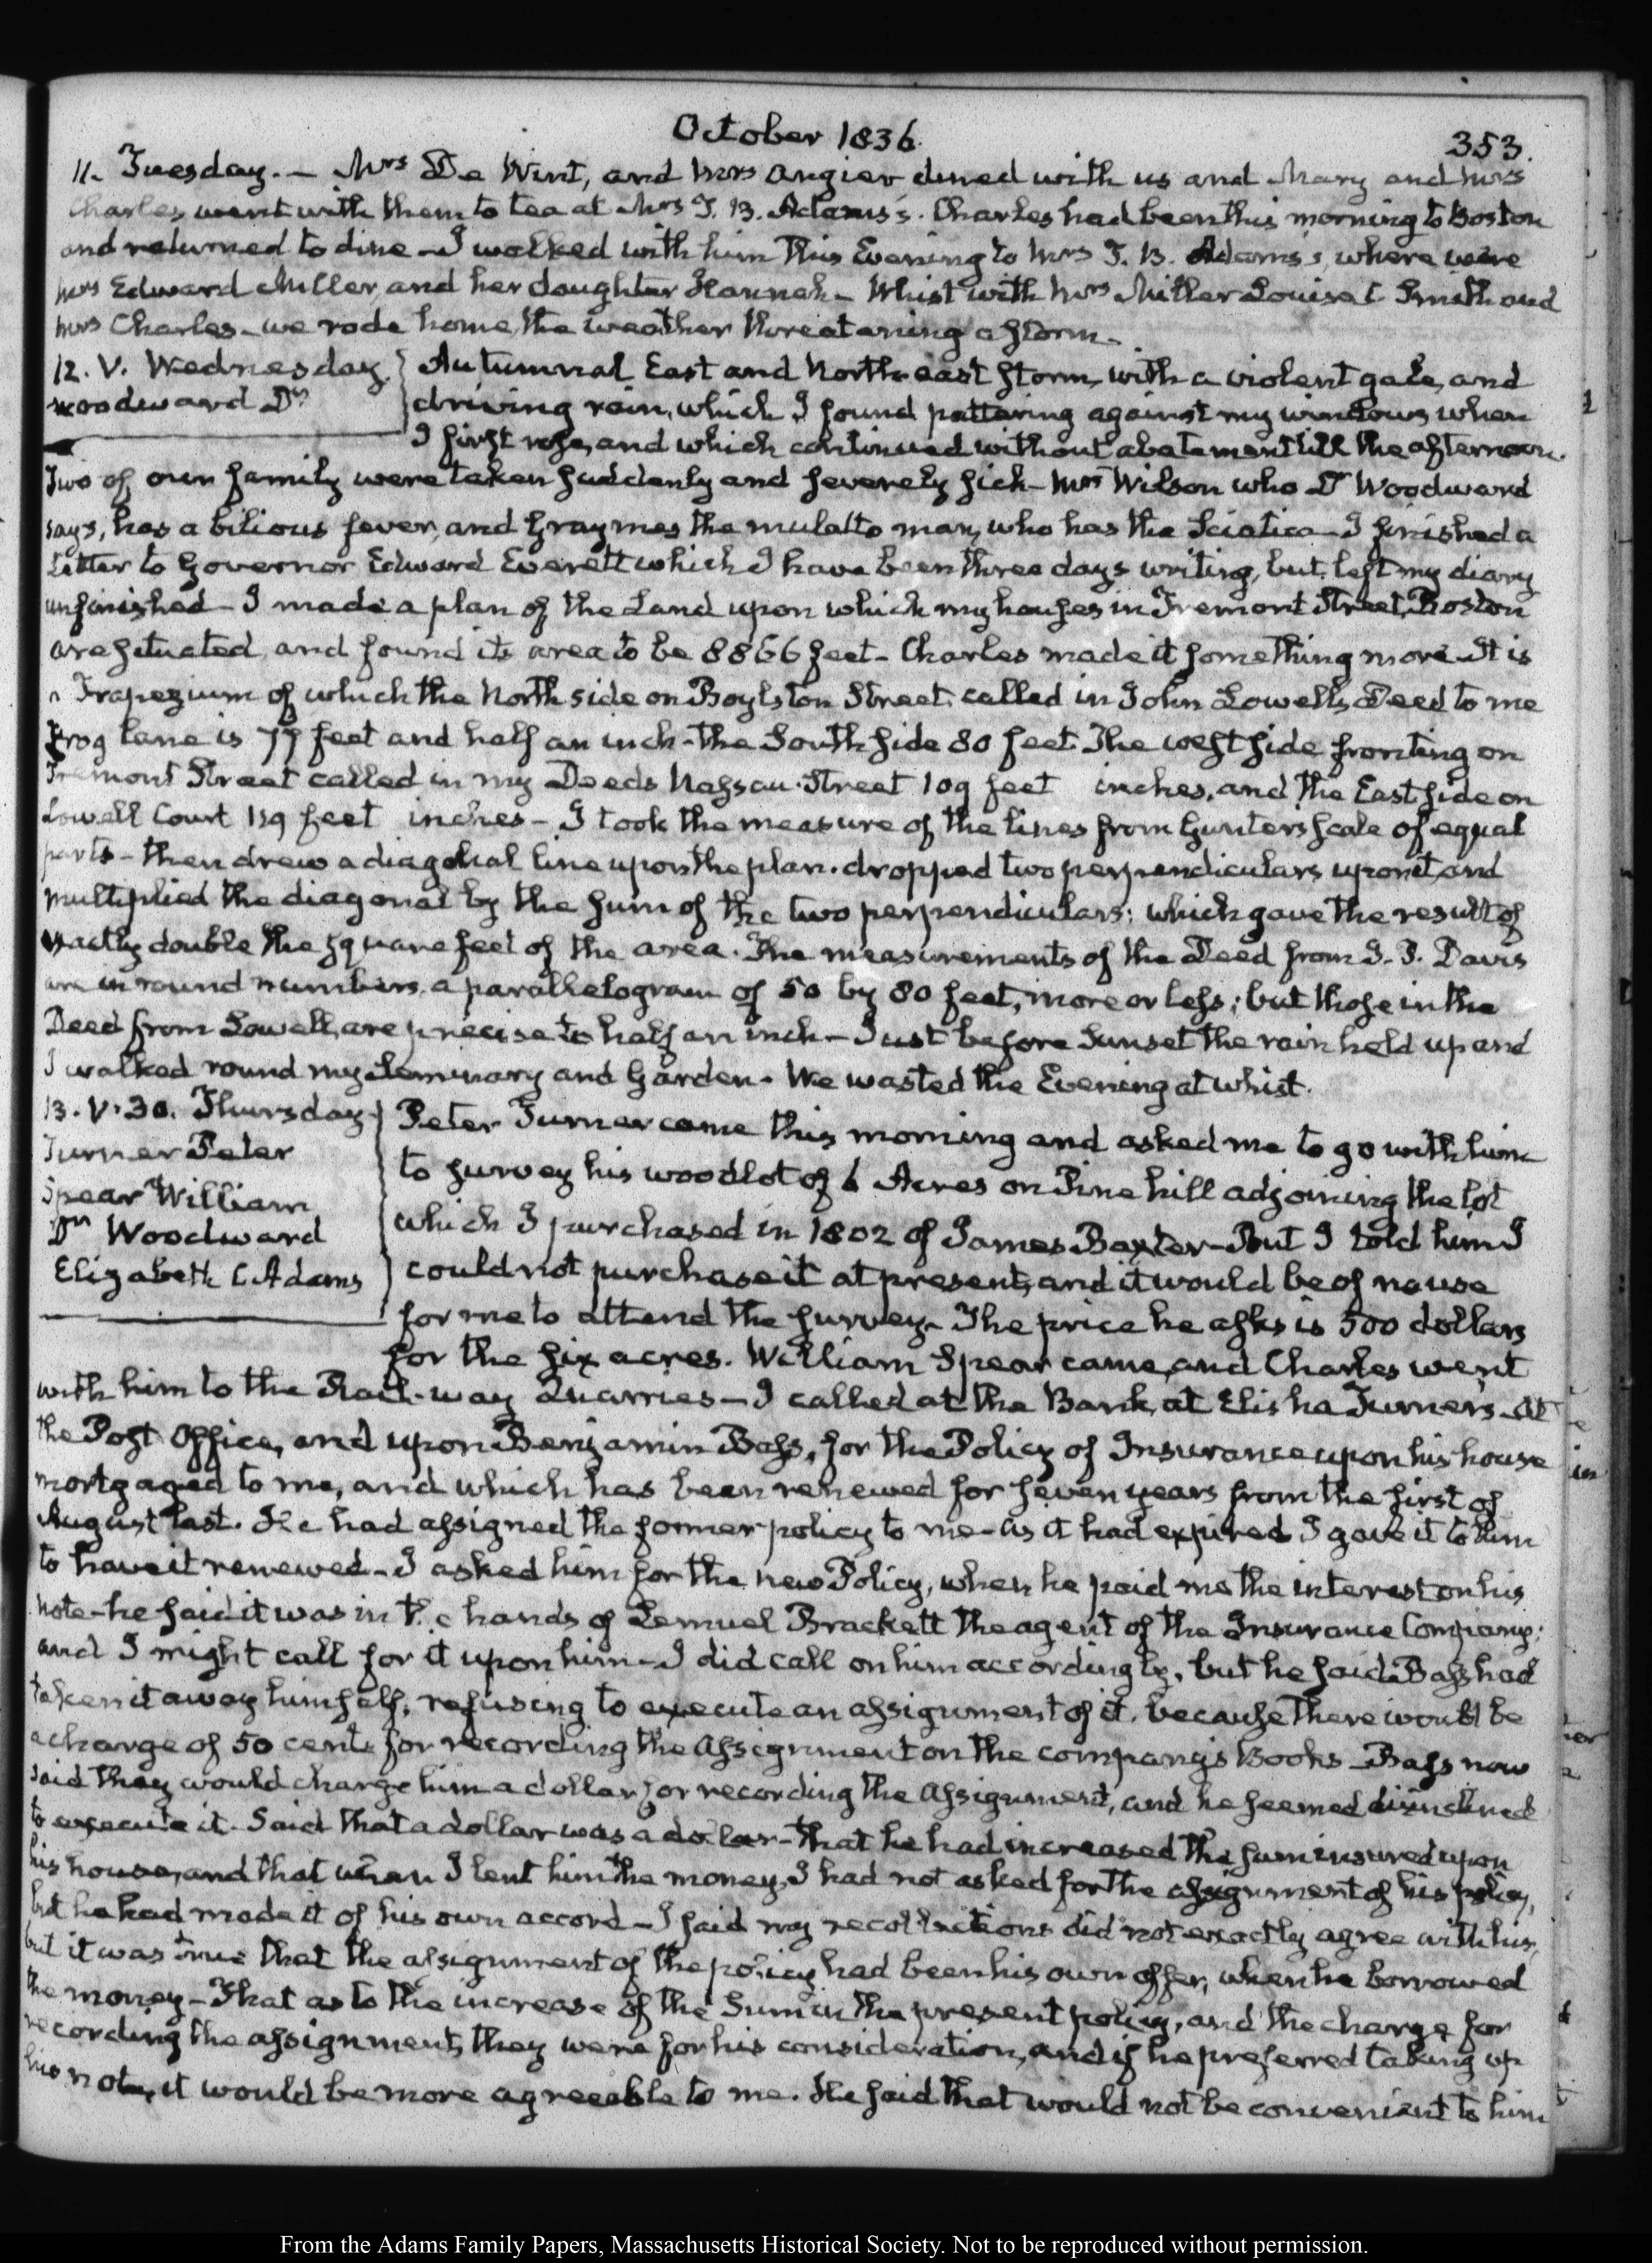 October 1836.
353.
11. Tuesday. — Mrs De Wint, and Mrs Angier dined with us and Mary and Mrs
Charles went with them to tea at Mrs T. B. Adams's. Charles had been this morning to Boston
and returned to dine — I walked with him this Evening to Mrs T. B. Adams's, where were
Mrs Edward Miller, and her daughter Hannah — Whist with Mrs Miller Louisa C. Smith and
Mrs Charles — we rode home, the weather threatening a storm.
12. V. Wednesday.
Woodward Dr
Autumnal East and North-east storm, with a violent gale, and
driving rain, which I found pattering against my windows when
I first rose, and which continued without abatement till the afternoon.
Two of our family were taken suddenly and severely sick — Mrs Wilson who Dr Woodward
says, has a bilious fever, and Graymes the mulatto man, who has the Sciatica — I finished a
Letter to Governor Edward Everett which I have been three days writing, but left my diary
unfinished — I made a plan of the Land upon which my houses in Tremont Street, Boston
are situated, and found its area to be 8866 feet — Charles made it something more — It is
a Trapezium of which the North side on Boylston Street called in John Lowell's Deed to me
Frog lane is 77 feet and half an inch — the South side 80 feet. The west side fronting on
Tremont Street called in my Deeds Nassau Street 109 feet inches, and the East side on
Lowell Court 119 feet inches — I took the measure of the lines from Gunters scale of equal
parts — then drew a diagonal line upon the plan. dropped two perpendiculars upon it, and
multiplied the diagonal by the sum of the two perpendiculars; which gave the result of
exactly double the square feet of the area. The measurements of the Deed from I. P. Davis
are in round numbers, a parallelogram of 50 by 80 feet, more or less; but those in the
Deed from Lowell, are precise to half an inch — Just before Sunset the rain held up and
I walked round my Seminary and Garden. We wasted the Evening at whist.
13. V. 30. Thursday
Turner Peter
Spear William
Dr Woodward
Elizabeth C. Adams
Peter Turner came this morning and asked me to go with him
to survey his woodlot of 6 Acres on Pine hill adjoining the lot
which I purchased in 1802 of James Baxter — But I told him I
could not purchase it at present, and it would be of no use
for me to attend the survey — The price he asks is 500 dollars
for the six acres. William Spear came, and Charles went
with him to the Rail-way Quarries — I called at the Bank, at Elisha Turner's. At
the Post Office, and upon Benjamin Bass, for the Policy of Insurance upon his house
mortgaged to me, and which has been renewed for seven years from the first of
August last. He had assigned the former policy to me — As it had expired I gave it to him
to have it renewed — I asked him for the new Policy, when he paid me the interest on his
note — he said it was in the hands of Lemuel Brackett the agent of the Insurance Company;
and I might call for it upon him — I did call on him accordingly, but he said Bass had
taken it away himself, refusing to execute an assignment of it, because there would be
a charge of 50 cents for recording the Assignment on the company's Books — Bass now
said they would charge him a dollar for recording the Assignment, and he seemed disinclined
to execute it. Said that a dollar was a dollar — that he had increased the sum insured upon
his house, and that when I lent him the money, I had not asked for the assignment of his policy,
but he had made it of his own accord — I said my recollections did not exactly agree with his,
but it was true that the assignment of the policy had been his own offer, when he borrowed
the money — That as to the increase of the Sum in the present policy, and the charge for
recording the assignment, they were for his consideration, and if he preferred taking up
his note, it would be more agreeable to me. He said that would not be convenient to him
From the Adams Family Papers, Massachusetts Historical Society. Not to be reproduced without permission.